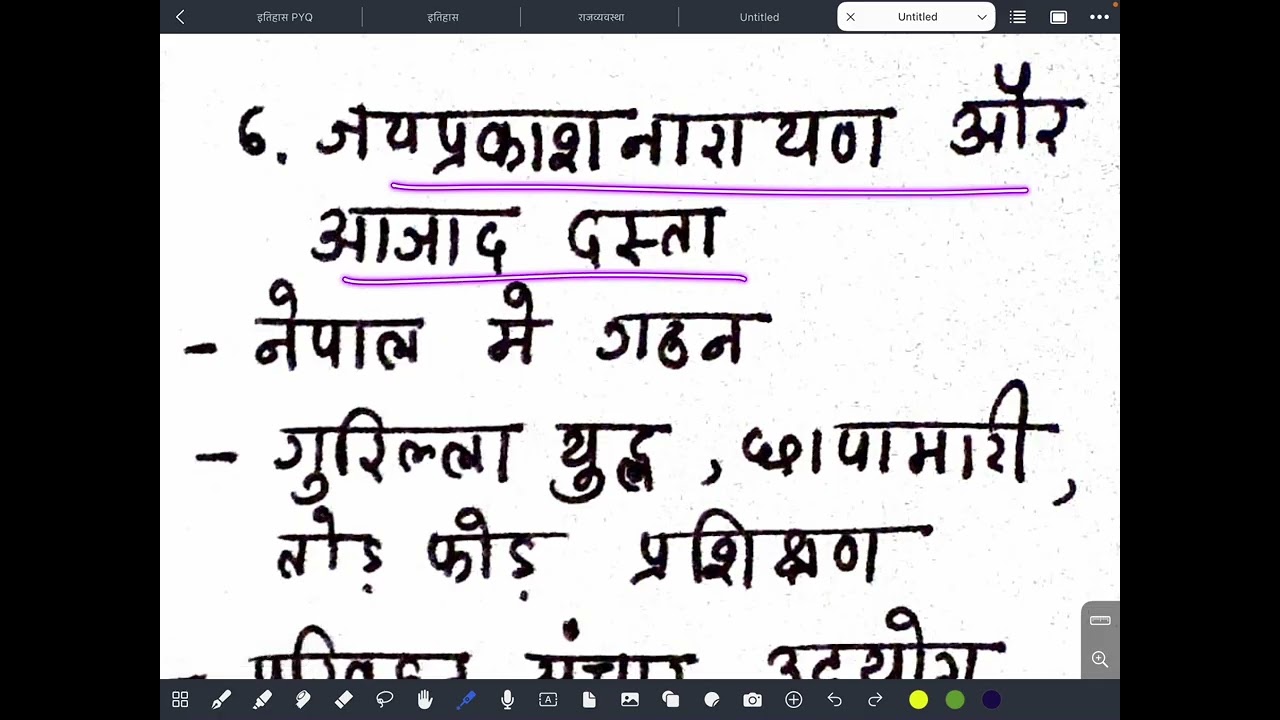 इतिहास PYQ
इतिहास
राजव्यवस्था
Untitled
Untitled
6. जयप्रकाश नारायण और
आजाद दस्ता
- नेपाल मे गठन
- गुरिल्ला युद्ध, छापामारी,
तोड़ फोड़ प्रशिक्षण